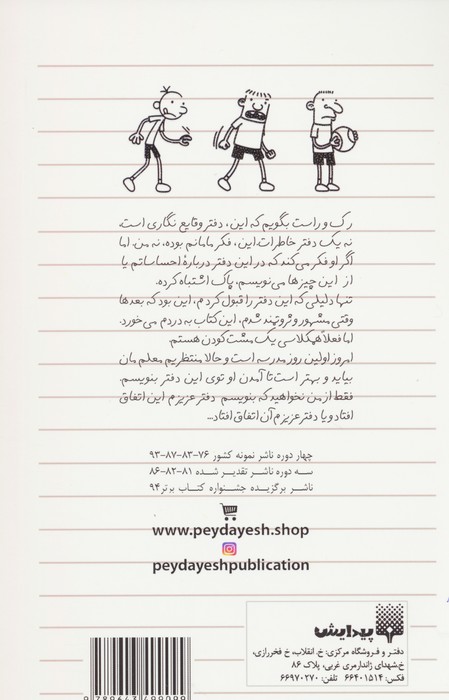 رک و راست بگویم که این، دفتر وقایع نگاری است،
نه یک دفتر خاطرات. این، فکر مامانم بوده، نه من. اما
اگر او فکر می‌کند که در این دفتر دربارهٔ احساساتم یا
از این چیزها می‌نویسم، پاک اشتباه کرده.
تنها دلیلی که این دفتر را قبول کردم، این بود که بعدها
وقتی مشهور و ثروتمند شدم، این کتاب به دردم می‌خورد.
اما فعلاً همکلاسی یک مشت کودن هستم.
امروز اولین روز مدرسه است و حالا منتظریم معلم مان
بیاید و بهتر است تا آمدن او توی این دفتر بنویسم.
فقط از من نخواهید که بنویسم دفتر عزیزم این اتفاق
افتاد و یا دفتر عزیزم آن اتفاق افتاد...
چهار دوره ناشر نمونه کشور ۷۶-۸۳-۸۷-۹۳
سه دوره ناشر تقدیر شده ۸۱-۸۲-۸۶
ناشر برگزیده جشنواره کتاب برتر ۹۴
www.peydayesh.shop
peydayeshpublication
پیدایش
دفتر و فروشگاه مرکزی: خ. انقلاب، خ فخررازی،
خ.شهدای ژاندارمری غربی، پلاک ۸۶
فکس: ۶۶۴۰۱۵۱۴ تلفن: ۶۶۹۷۰۲۷۰
9789643499099